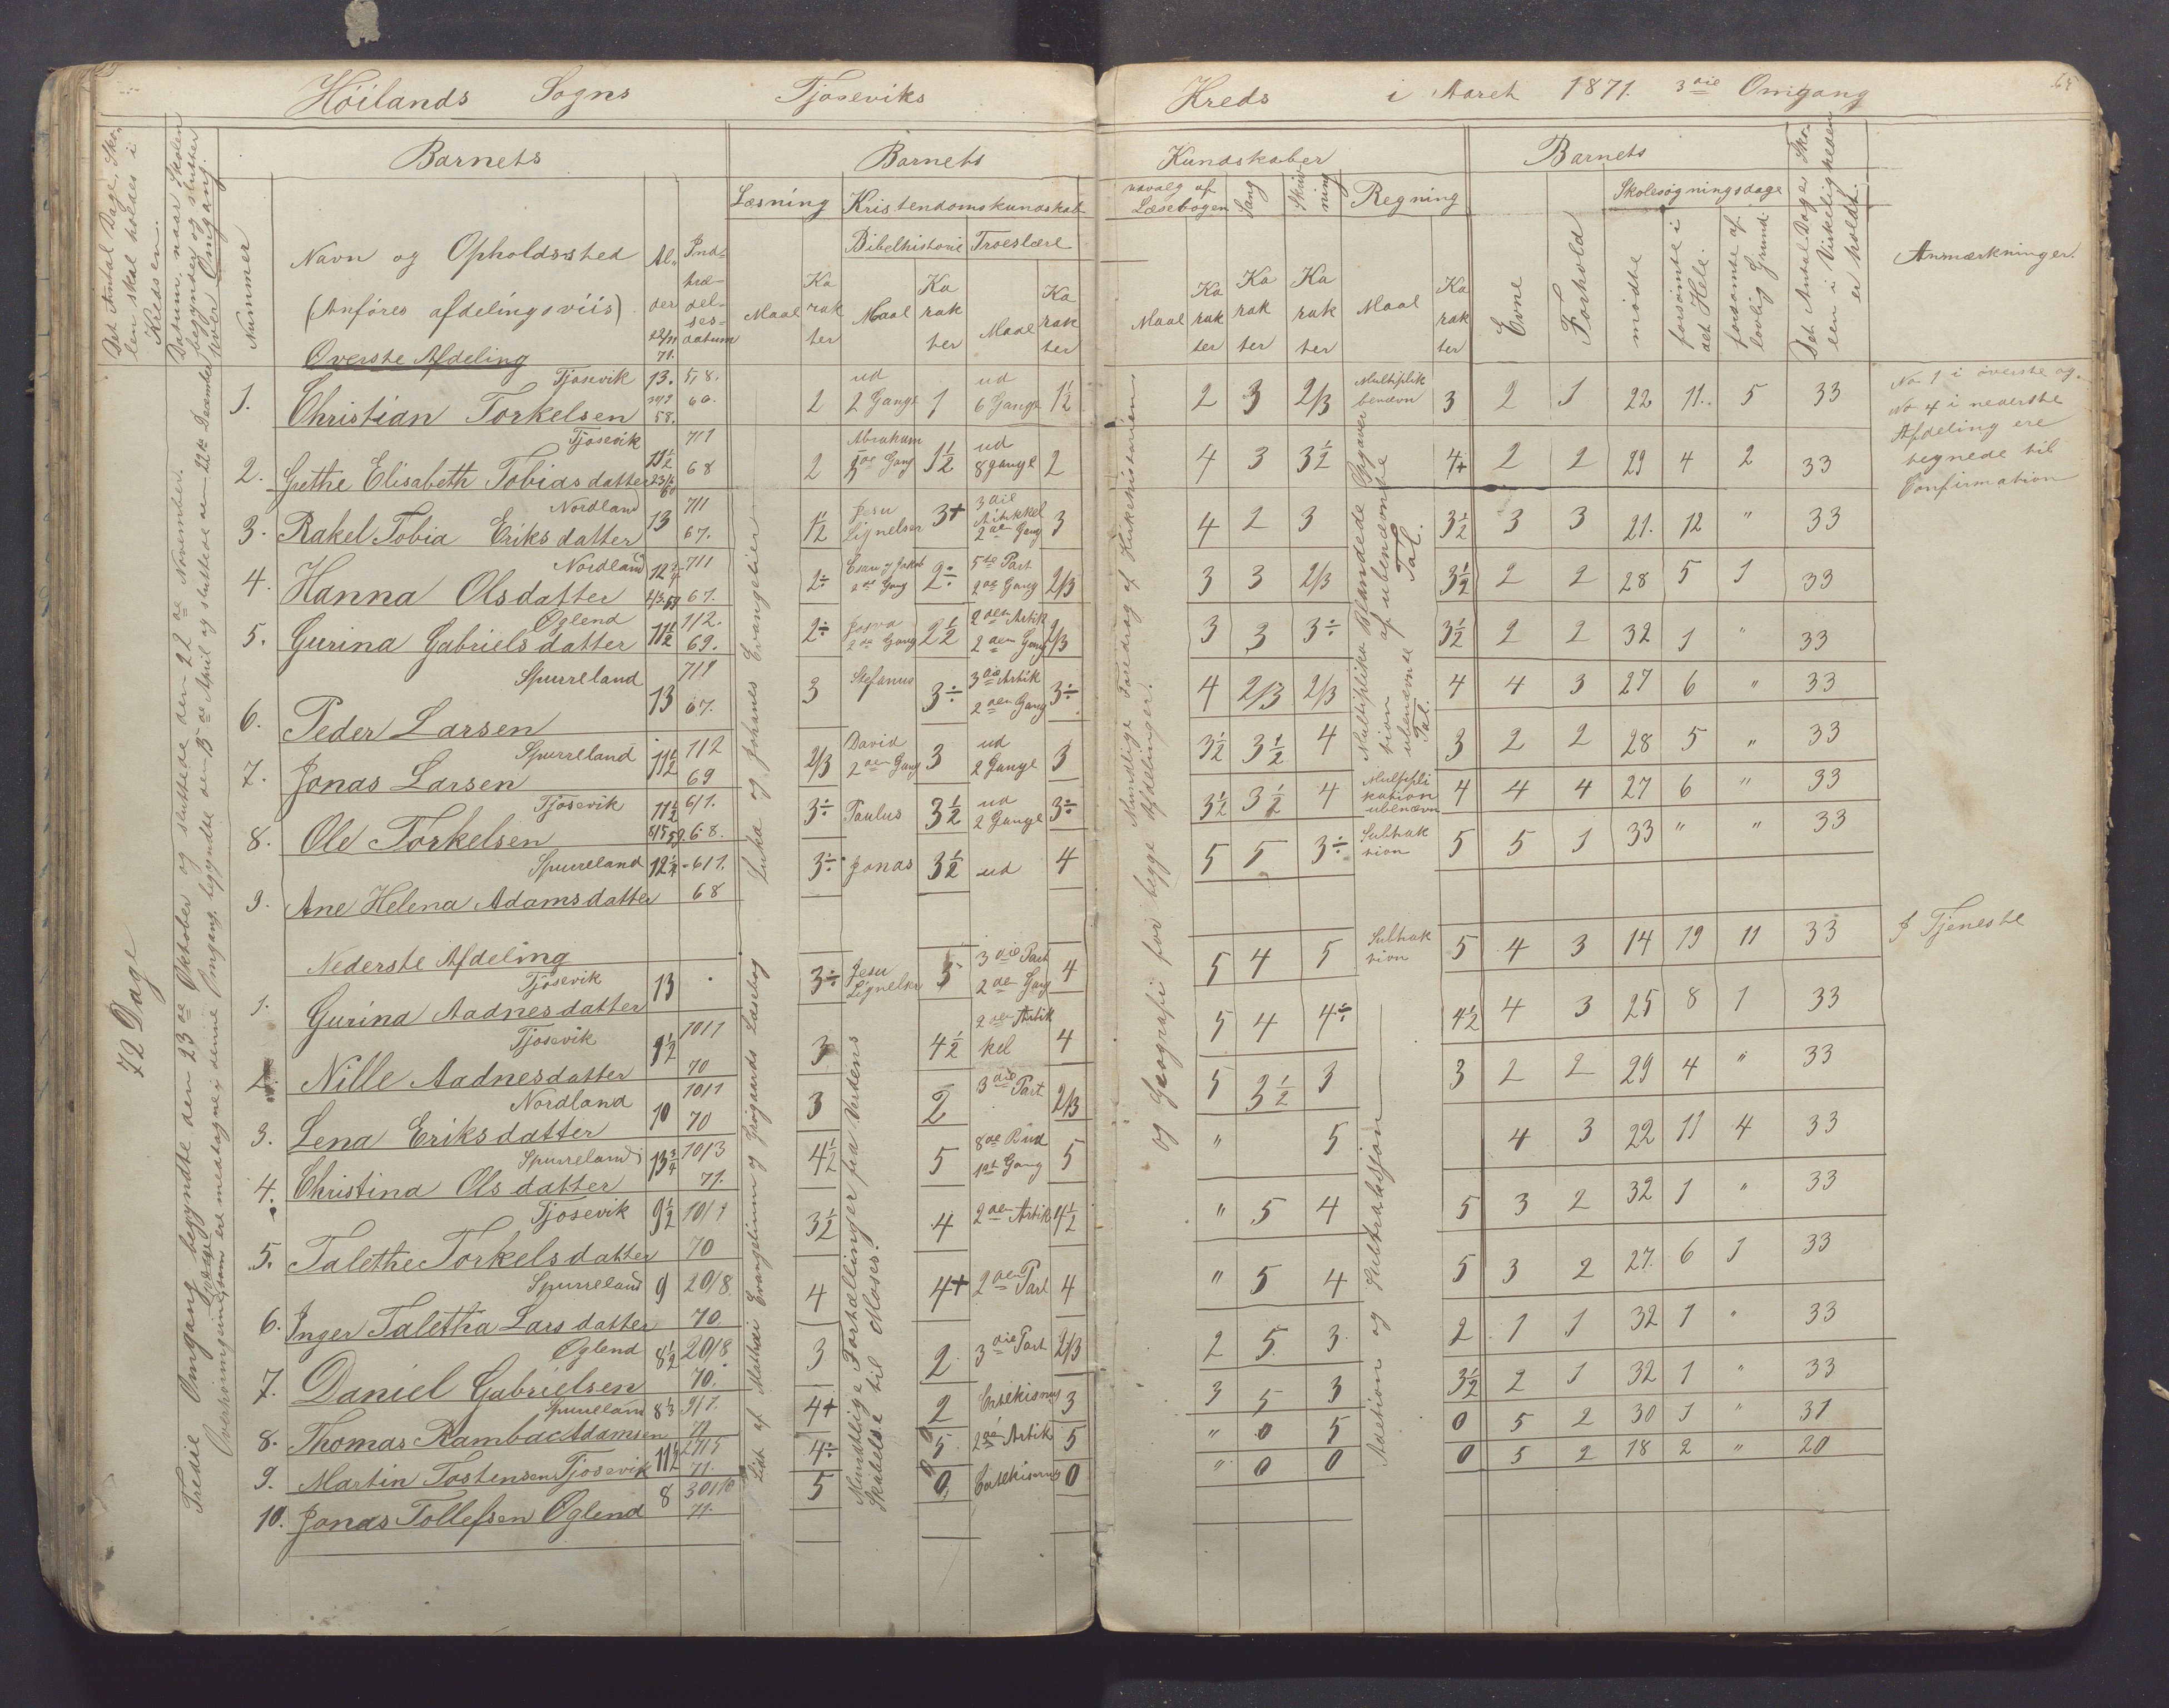 Høilands Sogns Tjoseviks Kreds i Aaret 1871. 3die Omgang
65
Det Antal Dage, Sko-
len skal holdes i
Kredsen.
Datum, naar Skolen
begynder og slutter
hver Omgang.
Nummer
Barnets
Navn og Opholdssted
(Anføres afdelingsviis).
Al-
der
22/11
71.
Ind-
træ-
del-
ses-
datum
Barnets
Læsning
Maal
Ka
rak
ter
Kristendomskundskab
Bibelhistorie
Maal
Ka
rak
ter
Troeslære
Maal
Ka
rak
ter
Kundskaber
udvalg af
Læsebogen
Maal
Ka
rak
ter
Sang
Ka
rak
ter
Skriv
ning
Ka
rak
ter
Regning
Maal
Ka
rak
ter
Barnets
Evne
Forhold
Skolesøgningsdage
mødte
forsømte i
det Hele.
forsømte af
lovlig Grund
Det Antal Dage Sko-
len i Virkeligheden
er holdt.
Anmærkninger.
72 Dage
Tredie Omgang begyndte den 23de Oktober og sluttede den 22de November.
Luka og Johanes Evangelier
Mundtlige Foredrag af Kirkehistorien
og Geografi for begge Afdelinger.
Overste Afdeling
1. Christian Torkelsen Tjosevik 13. 5/8. 60. 58. 2 ud 2 Gange 1 ud 6 Gange 1½ 2 3 2/3 Multiplik benævn 3 2 1 22 11. 5 33
No 1 i øverste og
No 4 i nederste
Afdeling ere
tegnede til
Confirmation
2. Grethe Elisabeth Tobiasdatter Tjosevik 11½ 7/11 68 2 Abraham Gang 1½ ud 8 gange 2 4 3 3½ 4+ 2 2 29 4 2 33
3. Rakel Tobia Eriksdatter Nordland 13 7/11 67. 1½ Jesu Lignelser 3+ 3die Artikkel 2den Gang 3 4 2 3 3½ 3 3 21. 12 " 33
4. Hanna Olsdatter Nordland 7/11 67. 2÷ Esau og Jakob 2de Gang 2÷ 5te Part 2de Gang 2/3 3 3 2/3 3½ 2 2 28 5 1 33
5. Gurina Gabrielsdatter Oglend 11½ 1/12. 69. 2÷ Josva 2de Gang 2½ 2den Artik 2den Gang 2/3 3 3 3÷ 3½ 2 2 32 1 " 33
6. Peder Larsen Spurreland 13 7/11 67. 3 Stefanus 3÷ 3die Artik 2den Gang 3÷ 4 2/3 2/3 4 4 3 27 6 " 33
7. Jonas Larsen Spurreland 11½ 1/12 69 2/3 David 2den Gang 3 ud 2 Gange 3 3½ 3½ 4 3 2 2 28 5 " 33
8. Ole Torkelsen Tjosevik 11½ 6/1. 68. 3÷ Paulus 3½ ud 2 Gange 3÷ 3½ 3½ 4 Multipli kation ubenævn 4 4 4 27 6 " 33
9. Ane Helena Adamsdatter Spurreland 6/1. 68 3÷ Jonas 3½ ud 4 5 5 3÷ Subtrak tion 5 5 1 33 " " 33
Nederste Afdeling
Mundtlige Fortællinger fra Verdens
Skabelse til Moses.
Adetion og Subtraksjon
1. Gurina Aadnesdatter Tjosevik 13 3÷ Jesu Lignelser 3 3die Part 2den Gang 4 5 4 5 Subtrak tion 5 4 3 14 19 11 33 I Tjeneste
2. Nille Aadnesdatter Tjosevik 9½ 10/1 70 3 4½ 2den Artik kel 4 5 4 4÷ 4½ 4 3 25 8 1 33
3. Lena Eriksdatter Nordland 10 10/1 70 3 2 3die Part 2/3 5 3½ 3 3 2 2 29 4 " 33
4. Christina Olsdatter Spurreland 13¾ 10/3 71. 4½ 5 1st Gang 5 " 5 4 3 22 11 4 33
5. Talethe Torkelsdatter Tjosevik 9½ 10/1 70 3½ 4 2den Artik 4½ " 5 4 5 3 2 32 1 " 33
6. Inger Taletha Larsdatter Spurreland 9 20/8. 70 4 4+ 2den Part 4 " 5 4 5 3 2 27. 6 1 33
7. Daniel Gabrielsen Oglend 8½ 20/8 70. 3 2 3die Part 2/3 2 5 3 2 1 1 32 1 " 33
8. Thomas Rambact Adamsen Spurreland 8⅓ 9/1. 71 4+ 2 Catekismus 3 3 5 3 3½ 2 1 32 1 " 33
9. Martin Tostensen Tjosevik 11½ 27/5 71. 4÷ 5 2den Artik 5 " 0 5 0 5 2 30 1 " 31
10. Jonas Tollefsen Oglend 8 30/10 71. 5 0 Catekismus 0 " 0 0 0 5 2 18 2 " 20